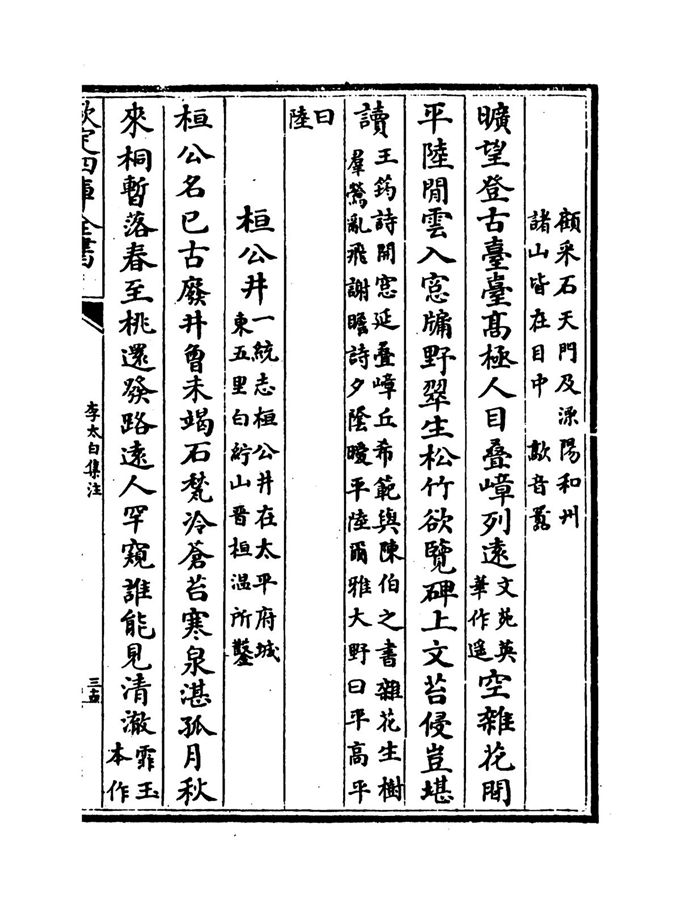 顧采石天門及溧陽和州
諸山皆在目中　歊音囂
曠望登古臺臺髙極人目疊嶂列逺文苑英
華作遥空雜花間
平陸閒雲入窓牖野翠生松竹欲覽碑上文苔侵豈堪
讀王筠詩開窓延疊嶂丘希範與陳伯之書雜花生樹
羣鶯亂飛謝瞻詩夕隂曖平陸爾雅大野曰平高平
曰
陸
桓公井一統志桓公井在太平府城
東五里白紵山晉桓温所鑿
桓公名已古廢井曾未竭石甃冷蒼苔寒泉湛孤月秋
來桐暫落春至桃還發路逺人罕窺誰能見清澈霏玉
本作
欽定四庫全書
李太白集注